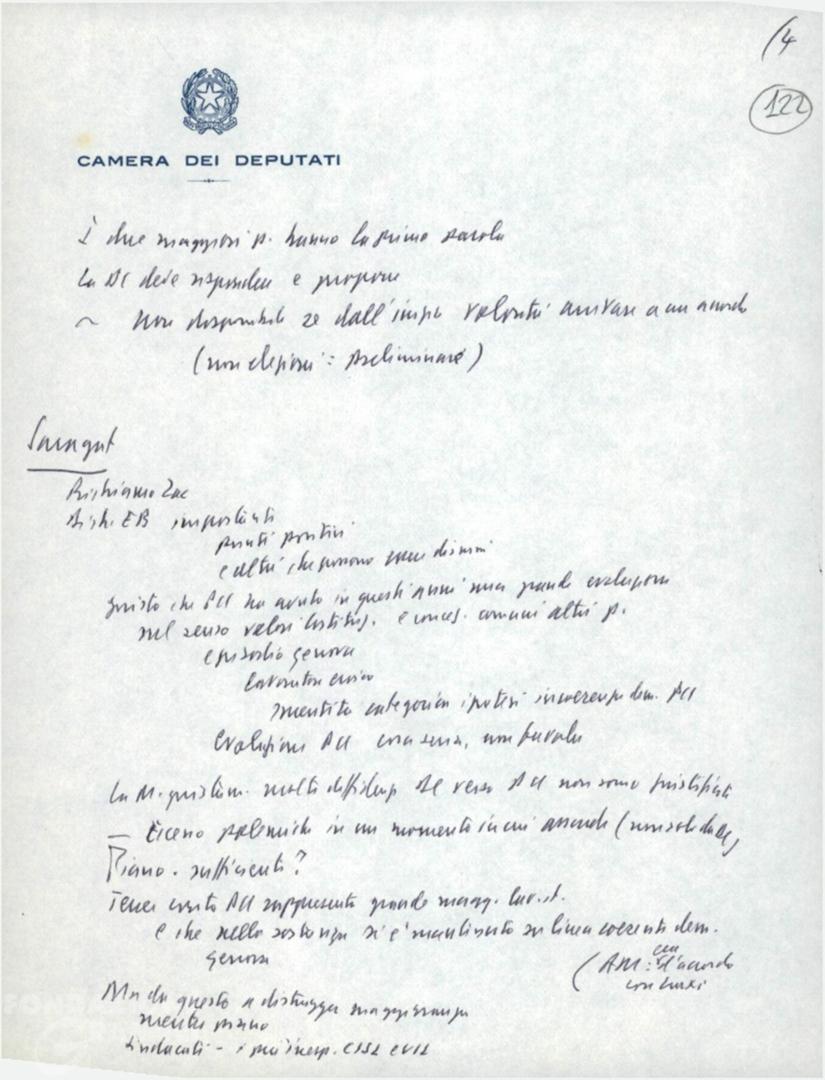 (4
122
CAMERA DEI DEPUTATI
I due maggiori p. hanno la prima parola
La DC deve rispondere e proporre
~ non disponibili se dall'inizio volontà arrivare a un accordo
(non elezioni: preliminare)
Saragat
Richiamo Zac
Dich. EB importanti
punti positivi
e altri che possono
giusto che PCI ha avuto in questi anni una grande evoluzione
nel senso valori e conces. comuni altri p.
episodio Genova
lavoratore
smentita categorica ipotesi dem. PCI
Evoluzione PCI cosa seria, non favola
La M. molte diffidenze DC verso PCI non sono giustificate
— polemiche in un momento in cui accordo (non solo
Piano. sufficienti?
Tener conto PCI rappresenta grande magg. lav.
e che nella sostanza si è mantenuto su linea coerente dem.
Genova
(AM: d'accordo
con
Ma da questo a distrugga maggioranza
mentre
Sindacati - CISL e UIL